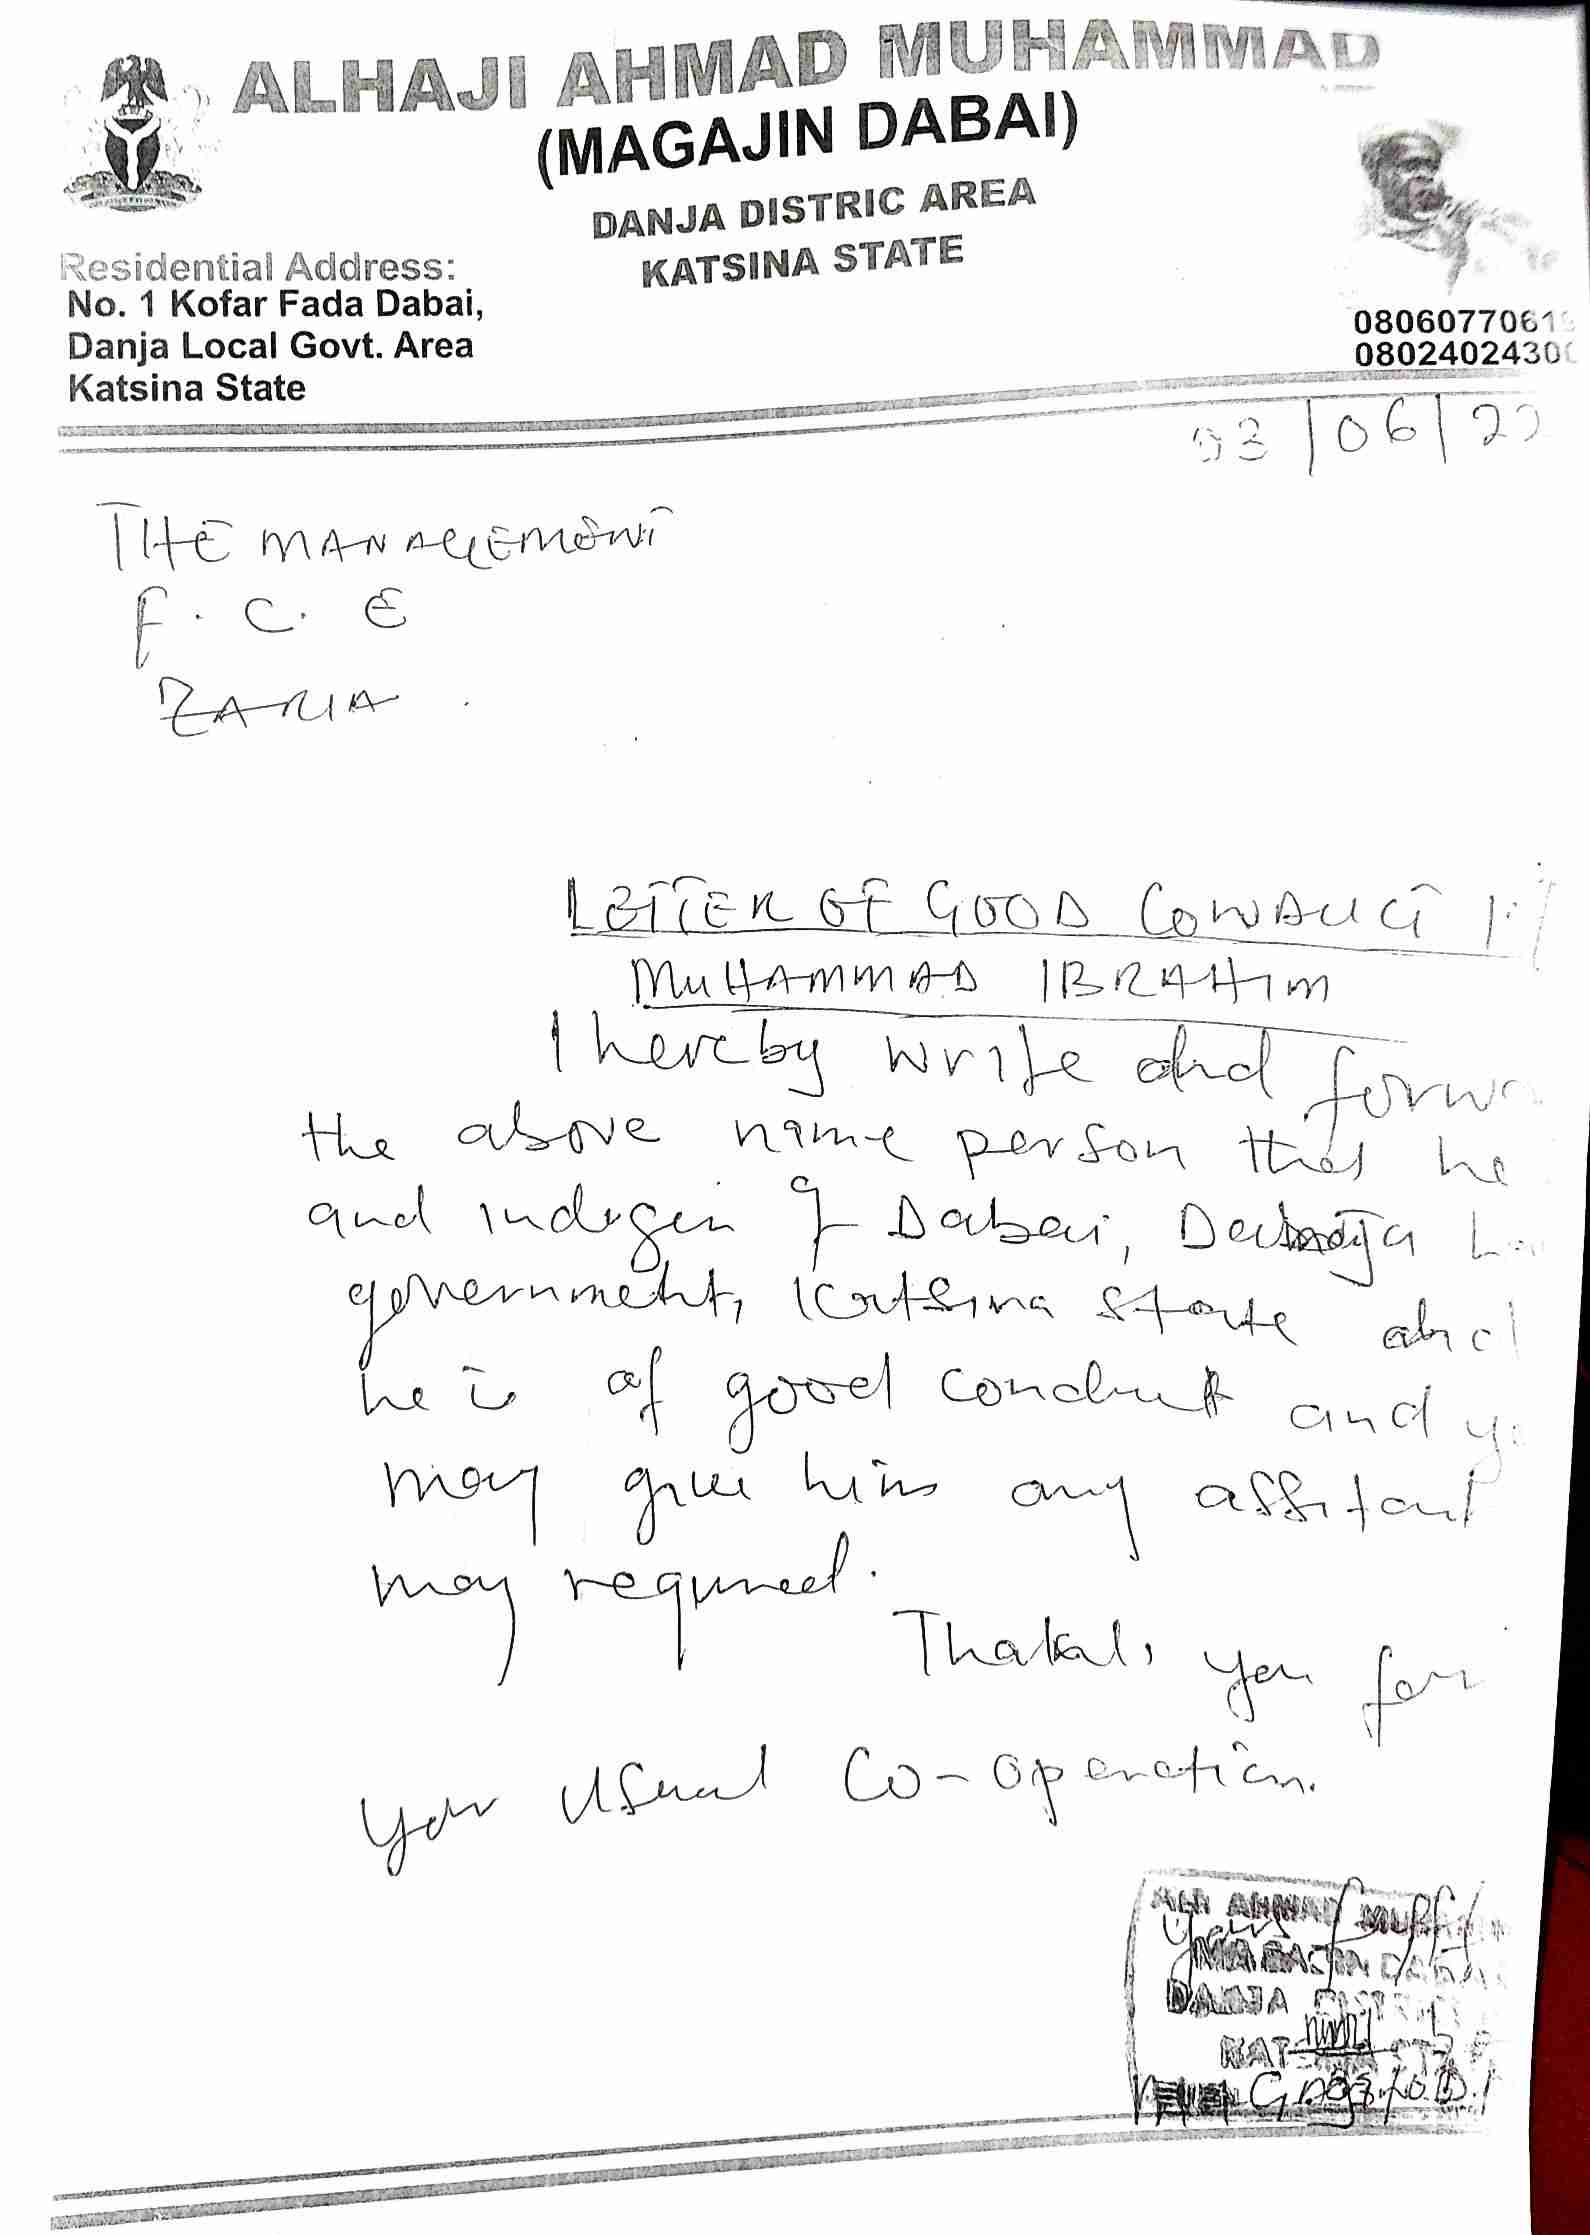 ALHAJI AHMAD MUHAMMAD
(MAGAJIN DABAI)
DANJA DISTRIC AREA
KATSINA STATE
Residential Address:
No. 1 Kofar Fada Dabai,
Danja Local Govt. Area
Katsina State
0806077061
0802402430
03/06/22
THE MANAGEMENT
F. C. E
ZARIA
LETTER OF GOOD CONDUCT
MUHAMMAD IBRAHIM
I hereby write and forw
the above name person that he
and indegin of Dabai, Danja
government, Katsina State and
he is of good conduct and
may give him any assitant
may required.
Thank you for
your usual co-operation.
ALH AHMAD
Yours
MAGAJIN
DANJA